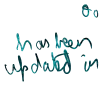 has been
updated in